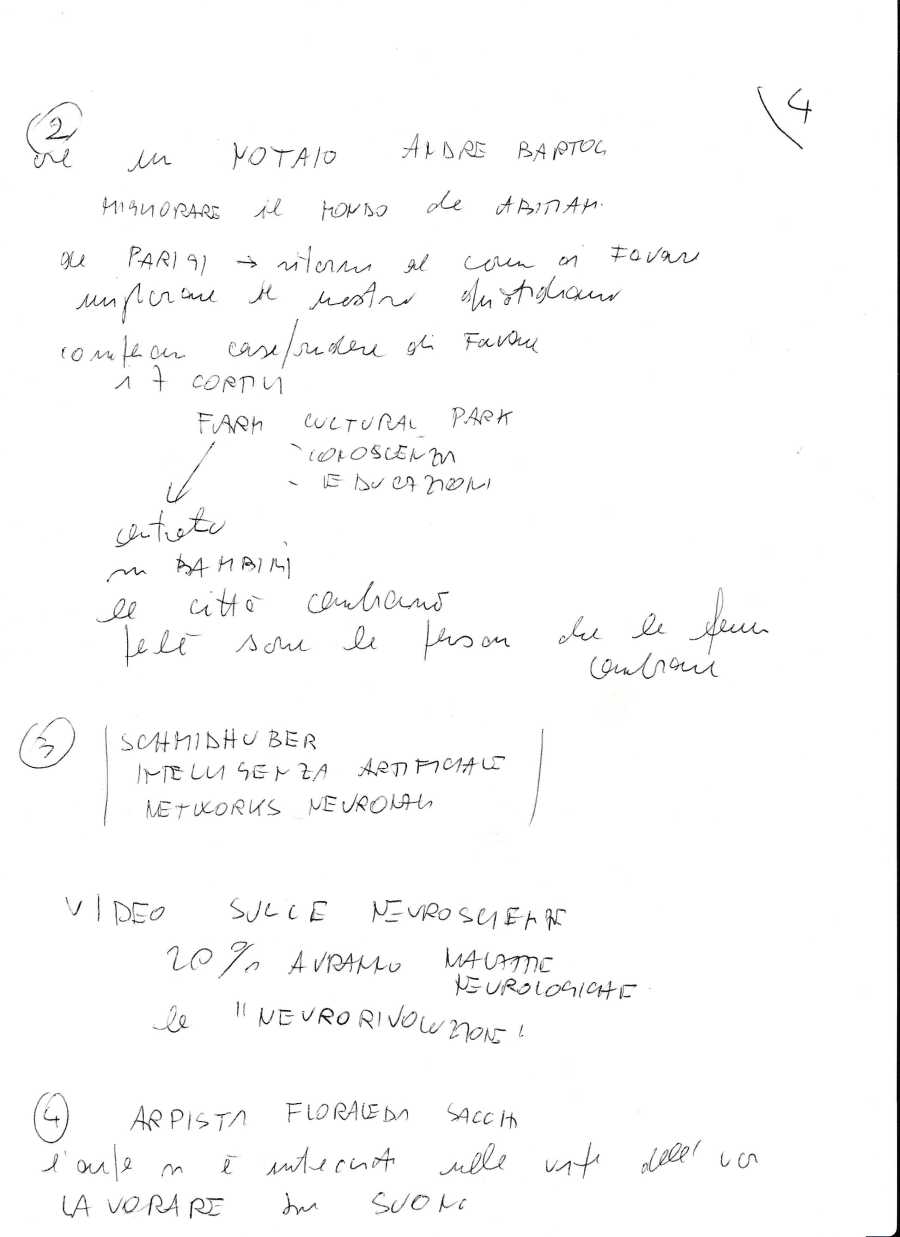 4
2
un NOTAIO ANDRE BARTOLI
MIGLIORARE il MONDO de ABITIAMO
da PARIGI → ritorno al di FAVARA
il nostro quotidiano
case/rudere di FAVARA
i 7 CORTILI
FARM CULTURAL PARK
- CONOSCENZA
- EDUCAZIONI
centrato
su BAMBINI
le città cambiano
sono le person che le fanno
cambiare
3
SCHMIDHUBER
INTELLIGENZA ARTIFICIALE
NETWORKS NEURONALI
VIDEO SULLE NEUROSCIENZE
20% AVRANNO MALATTIE
NEUROLOGICHE
la "NEURORIVOLUZIONE"
4 ARPISTA FLORALEDA SACCHI
l'arte è nelle dell'
LAVORARE SUONI